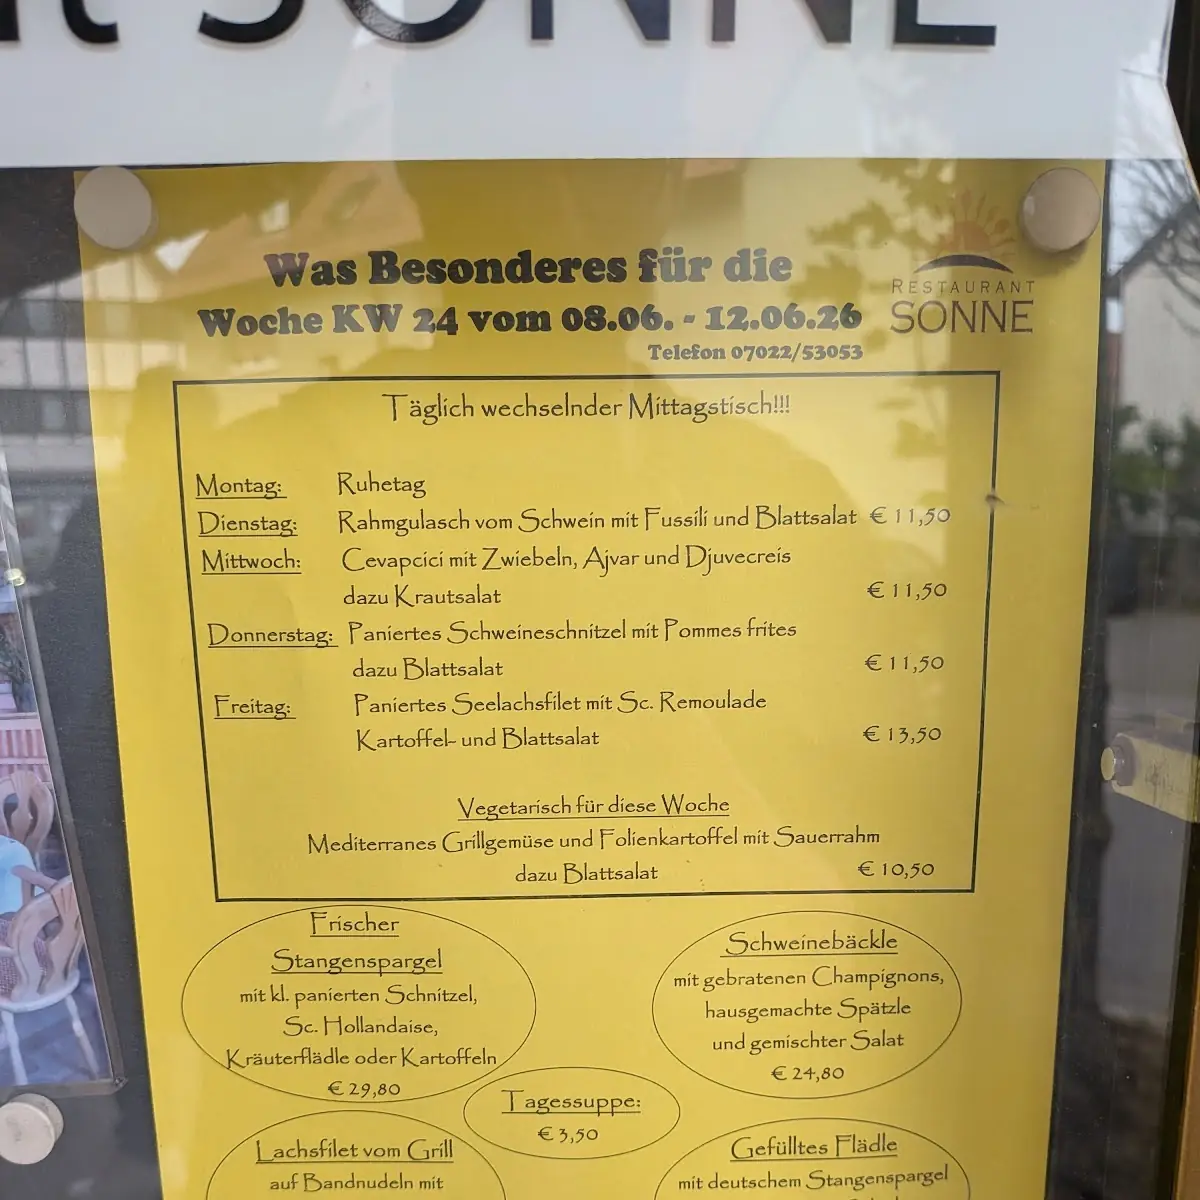 SONNE
Was Besonderes für die
Woche KW 24 vom 08.06. - 12.06.26
Telefon 07022/53053
RESTAURANT
SONNE
Täglich wechselnder Mittagstisch!!!
Montag: Ruhetag
Dienstag: Rahmgulasch vom Schwein mit Fussili und Blattsalat € 11,50
Mittwoch: Cevapcici mit Zwiebeln, Ajvar und Djuvecreis
dazu Krautsalat € 11,50
Donnerstag: Paniertes Schweineschnitzel mit Pommes frites
dazu Blattsalat € 11,50
Freitag: Paniertes Seelachsfilet mit Sc. Remoulade
Kartoffel- und Blattsalat € 13,50
Vegetarisch für diese Woche
Mediterranes Grillgemüse und Folienkartoffel mit Sauerrahm
dazu Blattsalat € 10,50
Frischer
Stangenspargel
mit kl. panierten Schnitzel,
Sc. Hollandaise,
Kräuterflädle oder Kartoffeln
€ 29,80
Schweinebäckle
mit gebratenen Champignons,
hausgemachte Spätzle
und gemischter Salat
€ 24,80
Tagessuppe:
€ 3,50
Lachsfilet vom Grill
auf Bandnudeln mit
Gefülltes Flädle
mit deutschem Stangenspargel